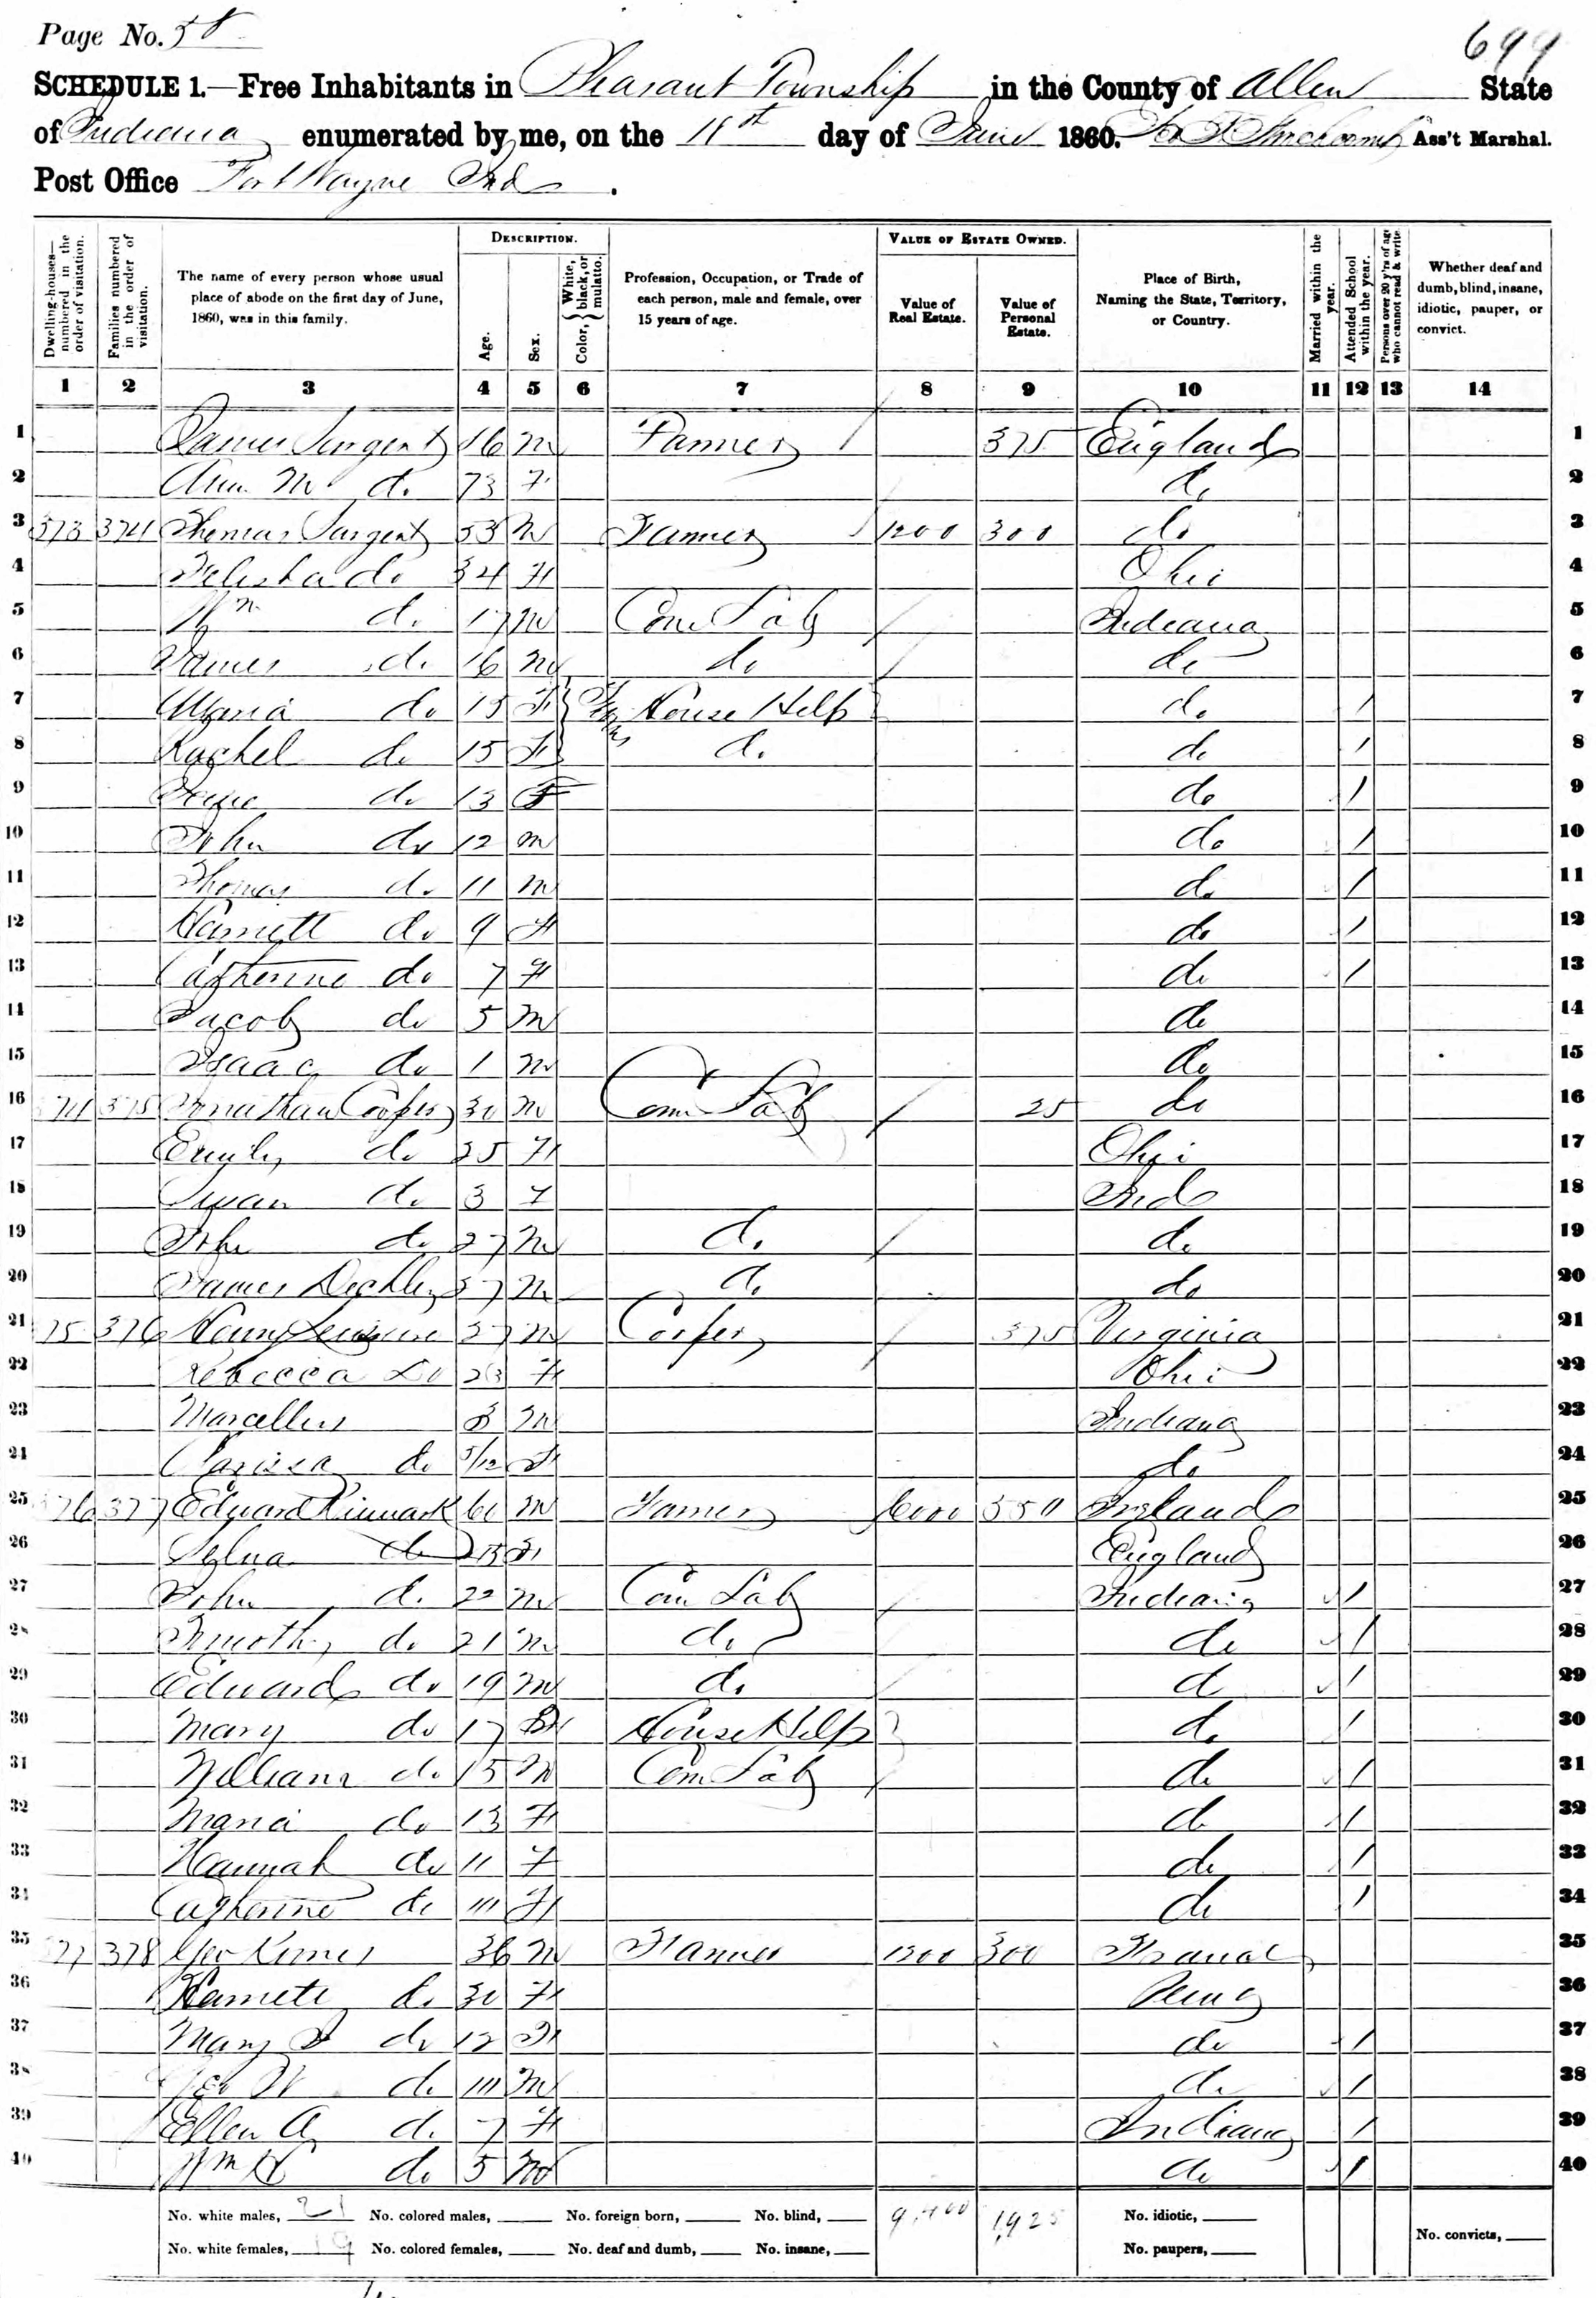 Page No. 58
699
SCHEDULE 1.—Free Inhabitants in Pleasant Township in the County of Allen State
of Indiana enumerated by me, on the 18th day of June 1860. Ass't Marshal.
Post Office Fort Wayne Ind.
Dwelling-houses—numbered in the order of visitation.
Families numbered in the order of visitation.
The name of every person whose usual place of abode on the first day of June, 1860, was in this family.
DESCRIPTION.
Age.
Sex.
Color, { White, black, or mulatto.
Profession, Occupation, or Trade of each person, male and female, over 15 years of age.
VALUE OF ESTATE OWNED.
Value of Real Estate.
Value of Personal Estate.
Place of Birth, Naming the State, Territory, or Country.
Married within the year.
Attended School within the year.
Persons over 20 y'rs of age who cannot read & write.
Whether deaf and dumb, blind, insane, idiotic, pauper, or convict.
1 2 3 4 5 6 7 8 9 10 11 12 13 14
1 James Sargent M Farmer / 375 England 1
2 Ann M do 73 F do 2
3 373 374 Thomas Sargent 53 M Farmer 1200 300 do 3
4 do 34 F Ohio 4
5 Wm do 17 M Com Lab / Indiana 5
6 James do 16 M do / do 6
7 Maria do 15 F House Help do / 7
8 Rachel do 15 F do do / 8
9 do 13 F do / 9
10 John do 12 M do / 10
11 Thomas do 11 M do / 11
12 Harriett do 9 F do / 12
13 Catherine do 7 F do / 13
14 Jacob do 5 M do 14
15 Isaac do 1 M do 15
16 74 375 Jonathan Cooper 30 M Com Lab / 25 do 16
17 Emily do 25 F Ohio 17
18 Susan do 3 F Ind 18
19 John do 27 M do / do 19
20 James 37 M do do 20
21 75 376 27 M Cooper / 375 Virginia 21
22 Rebecca Do 23 F Ohio 22
23 Marcellus 3 M Indiana 23
24 Clarissa do 5/12 F do 24
25 76 377 Edward 60 M Farmer 6000 550 England 25
26 Selina do F England 26
27 John do 22 M Com Lab / Indiana / 27
28 Timothy do 21 M do do / 28
29 Edward do 19 M do / do / 29
30 Mary do 17 F House Help do / 30
31 William do 15 M Com Lab / do / 31
32 Maria do 13 F do / 32
33 Hannah do 11 F do / 33
34 Catherine do 10 F do / 34
35 77 378 Geo 36 M Farmer 1200 300 France 35
36 Harriett do 30 F Penn 36
37 Mary do 12 F do / 37
38 Geo W do 10 M do / 38
39 Ellen A do 7 F Indiana / 39
40 Wm H do 5 M do / 40
No. white males, 21 No. colored males, No. foreign born, No. blind, 9,400 1925 No. idiotic,
No. white females, 19 No. colored females, No. deaf and dumb, No. insane, No. paupers, No. convicts,